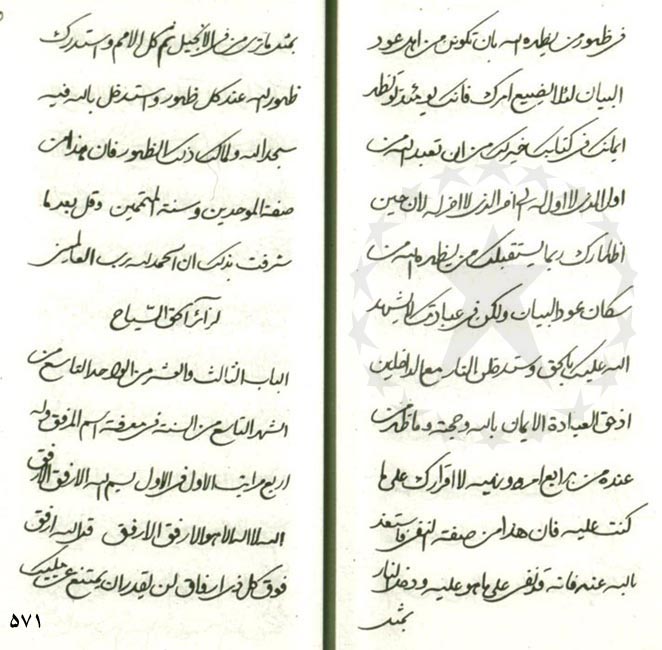 فی ظهور من یظهره الله بان تکونن من اهل عود
البیان لئلا یضیع امرک فانک یومئذ لو تظهر
ایمانک فی کتابک خیر لک من ان تعبد الله من
اول الذی لا اول له الی اخر الذی لا اخر له لان حین
اظهارک ربما یستقبلک من یظهره الله من
سکان عود البیان ولکن فی عبادتک لیشهد
الله علیک بالحق وستدخلن النار مع الداخلین
اذ حق العبادة الایمان بالله وحجته وما ظهر من
عنده من بدایع امره ونهیه لا اقرارک علی ما
کنت علیه فان هذا من صفة النفی فاستعذ
بالله عنه فانه قد نفی علی ما هو علیه ودخل النار
بمثل
بمثل ما تری من فی الانجیل ثم کل الامم واستدرک
ظهور الله عند کل ظهور واستدخل بالله فیه
سجد الله ولمالک ذلک الظهور فان هذا من
صفة الموحدین وسنة المتممین وقل بعد ما
شرفت بذلک ان الحمد لله رب العالمین
الباب الثالث والعشر من الواحد التاسع من
الشهر التاسع من السنة فی معرفة اسم المرفق وله
اربع مراتب الاول فی الاول بسم الله الارفق الارفق
الله لا اله الا هو الارفق الارفق قل الله ارفق
فوق کل ذی ارفاق لن یقدر ان یمتنع عن ملیک
۵۷۱